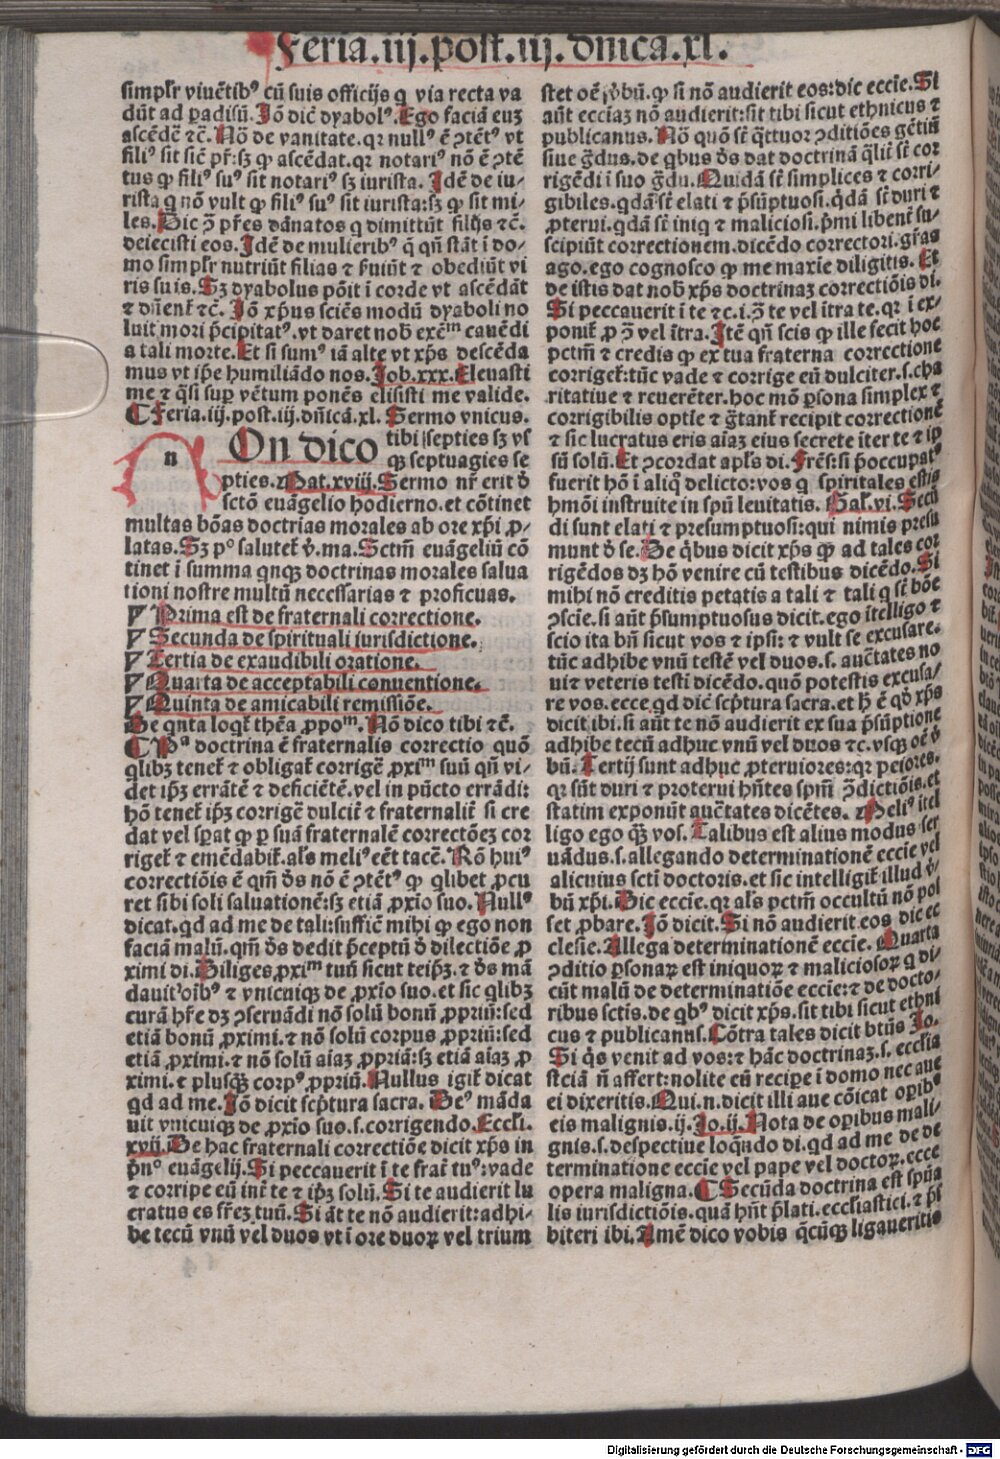 Feria.iij.post.iij.dnica.xl.
simplr̄ viuētibꝰ cū suis officijs q via recta va
dūt ad padisū. Jō dic̄ dyabolꝰ. Ego faciā euʒ
ascēdē ⁊c̄. Nō de vanitate. qr nullꝰ ē ↄtētꝰ vt
filiꝰ sit sic̄ pr̄: sʒ ꝙ ascēdat. qr notariꝰ nō ē ↄtē
tus ꝙ filiꝰ suꝰ sit notariꝰ sʒ iurista. Jdē de iu-
rista q nō vult ꝙ filiꝰ suꝰ sit iurista: sʒ ꝙ sit mi-
les. Dic ↄ̄ pr̄es dānatos q dimittūt filijs ⁊c̄.
deiecisti eos. Jdē de mulieribꝰ q̄ qn̄ stāt ī do-
mo simplr̄ nutriūt filias ⁊ ſuiūt ⁊ obediūt vi
ris suis. Sʒ dyabolus pōit ī corde vt ascēdāt
⁊ dn̄enr̄ ⁊c̄. Jō xp̄us sciēs modū dyaboli no
luit mori p̄cipitatꝰ. vt daret nob̄ exēᵐ cauēdi
a tali morte. Et si sumꝰ iā alte vt xp̄s descēda
mus vt ip̄e humiliādo nos. Job.xxx. Eleuasti
me ⁊ q̄si suꝑ vētum ponēs elisisti me valide.
¶ Feria.iij.post.iij.dn̄icā.xl. Sermo vnicus.
n
On dico tibi septies sʒ vs
qʒ septuagies se
pties. Mat.xviij. Sermo nr̄ erit ð
sctō euāgelio hodierno. et cōtinet
multas bōas doctrias morales ab ore xp̄i ꝓ-
latas. Sʒ pº salutet̄ v̄.ma. Sctm̄ euāgeliū cō
tinet ī summa qnqʒ doctrinas morales salua
tioni nostre multū necessarias ⁊ proficuas.
Prima est de fraternali correctione.
Secunda de spirituali iurisdictione.
Tertia de exaudibili oratione.
Quarta de acceptabili conuentione.
Quinta de amicabili remissiōe.
De qnta loqt̄ thēa ꝓpoᵐ. Nō dico tibi ⁊c̄.
¶ Pª doctrina ē fraternalis correctio quō
qlibʒ tenet̄ ⁊ obligat̄ corrigē ꝓxiᵐ suū qn̄ vi-
det ipʒ errātē ⁊ deficiētē. vel in pūcto errādi:
hō tenet̄ ipʒ corrigē dulcit̄ ⁊ fraternalit̄ si cre
dat vel sperat ꝙ ꝑ suā fraternalē correctōeʒ cor
riget̄ ⁊ emēdabit̄. als̄ meliꝰ eēt tacē. Rō huiꝰ
correctiōis ē qm̄ ðs nō ē ↄtētꝰ ꝙ qlibet ꝓcu
ret sibi soli saluationē: sʒ etiā ꝓxio suo. Nullꝰ
dicat. qd ad me de tali: suffic̄ mihi ꝙ ego non
faciā malū. qm̄ ðs dedit p̄ceptū ð dilectiōe ꝓ
ximi di. Diliges ꝓxiᵐ tuū sicut teipʒ. ⁊ ðs mā
dauit oībꝰ ⁊ vnicuiqʒ de ꝓxīo suo. et sic qlibʒ
curā hr̄e dʒ ↄseruādi nō solū bonū ꝓpriū: sed
etiā bonū ꝓximi. ⁊ nō solū corpus ꝓpriū: sed
etiā ꝓximi. ⁊ nō solū aīaʒ ꝓpriā: sʒ etiā aīaʒ ꝓ
ximi. ⁊ plusqʒ corpꝰ ꝓpriū. Nullus igit̄ dicat
qd ad me. Jō dicit scp̄tura sacra. Deꝰ māda
uit vnicuiqʒ de ꝓxīo suo. s. corrigendo. Eccli.
xvij. De hac fraternali correctiōe dicit xp̄s in
p̄nº euāgelij. Si peccauerit ī te frat̄ tuꝰ: vade
⁊ corripe eū int̄ te ⁊ ipʒ solū. Si te audierit lu
cratus es fr̄eʒ tuū. Si āt te nō audierit: adhi-
be tecū vnū vel duos vt ī ore duoꝝ vel trium
stet oē ꝟbū. ꝙ si nō audierit eos: dic eccīe. Si
aūt ecciaʒ nō audierit: sit tibi sicut ethnicus ⁊
publicanus. Nō quō st̄ qttuor ↄditiōes gētiū
siue g̅dus. de qbus ðs dat doctrinā qlit̄ st̄ cor
rigēdi ī suo g̅du. Quidā st̄ simplices ⁊ corri-
gibiles. qdā st̄ elati ⁊ p̄sūptuosi. qdā st̄ duri ⁊
ꝓterui. qdā st̄ iniq ⁊ maliciosi. p̄mi libent̄ su-
scipiūt correctionem. dicēdo correctori. gr̄as
ago. ego cognosco ꝙ me maxīe diligitis. Et
de istis dat nob̄ xp̄s doctrinaʒ correctiōis di.
Si peccauerit ī te ⁊c. i. ↄ̄ te vel ītra te. qr ī ex-
ponit̄ ꝓ ↄ̄ vel ītra. Jtē qn̄ scis ꝙ ille fecit hoc
pctm̄ ⁊ credis ꝙ ex tua fraterna correctione
corriget̄: tūc vade ⁊ corrige eū dulciter. s. cha
ritatiue ⁊ reuerēter. hoc mō ꝑsona simplex ⁊
corrigibilis optīe ⁊ g̅tant̄ recipit correctionē
⁊ sic lucratus eris aīaʒ eius secrete īter te ⁊ ip
sū solū. Et ↄcordat apl̄s di. Frēs: si p̄occupatꝰ
fuerit hō ī aliq̄ delicto: vos q spiritales estis
hmōi instruite in spū leuitatis. Gal.vi. Secū
di sunt elati ⁊ presumptuosi: qui nimis presu
munt ð se. De qbus dicit xp̄s ꝙ ad tales cor
rigēdos dʒ hō venire cū testibus dicēdo. Si
mihi nō creditis petatis a tali ⁊ tali q st̄ bōe
ↄscīe. si aūt p̄sumptuosus dicit. ego ītelligo ⁊
scio ita bn̄ sicut vos ⁊ ipsi: ⁊ vult se excusare.
tūc adhibe vnū testē vel duos. s. auc̄tates no
ui ⁊ veteris testī dicēdo. quō potestis excusa-
re vos. ecce qd dic̄ scp̄tura sacra. et h̄ ē qð xp̄s
dicit ibi. si aūt te nō audierit ex sua p̄sūptione
adhibe tecū adhuc vnū vel duos ⁊c. vsqʒ oē ꝟ
bū. Tertij sunt adhuc ꝓteruiores: qr peiores.
qr sūt duri ⁊ proterui hn̄tes spm̄ ↄ̄dictiōis. et
statim exponūt auc̄tates dicētes. Meliꝰ itel
ligo ego qʒ vos. Talibus est alius modus ser
uādus. s. allegando determinationē eccīe vel
alicuius scti doctoris. et sic intelligit̄ illud ꝟ
bū xp̄i. Dic eccīe. qr als̄ pctm̄ occultū nō pol
set ꝓbare. Jō dicit. Si nō audierit eos dic ec
clesie. Allega determinationē eccīe. Quarta
ↄditio ꝑsonaꝝ est iniquoꝝ ⁊ maliciosoꝝ q di-
cūt malū de determinatiōe eccīe: ⁊ de docto-
ribus sctis. de qbꝰ dicit xp̄s. sit tibi sicut ethni
cus ⁊ publicanus. Cōtra tales dicit btūs Jo.
Si qs venit ad vos: ⁊ hāc doctrinaʒ. s. eccl̄ia
sticā n̄ affert: nolite eū recipe ī domo nec aue
ei dixeritis. Qui.n.dicit illi aue cōicat opibꝰ
eis malignis. ij. Jo.ij. Nota de opibus mali-
gnis. s. despectiue loqndo di. qd ad me de de
terminatione eccīe vel pape vel doctoꝝ. ecce
opera maligna. ¶ Secūda doctrina est spūa
lis iurisdictiōis. quā hn̄t p̄lati. ecclīastici. ⁊ p̄s
biteri ibi. Amē dico vobis qcūqʒ ligaueritis
Digitalisierung gefördert durch die Deutsche Forschungsgemeinschaft - DFG